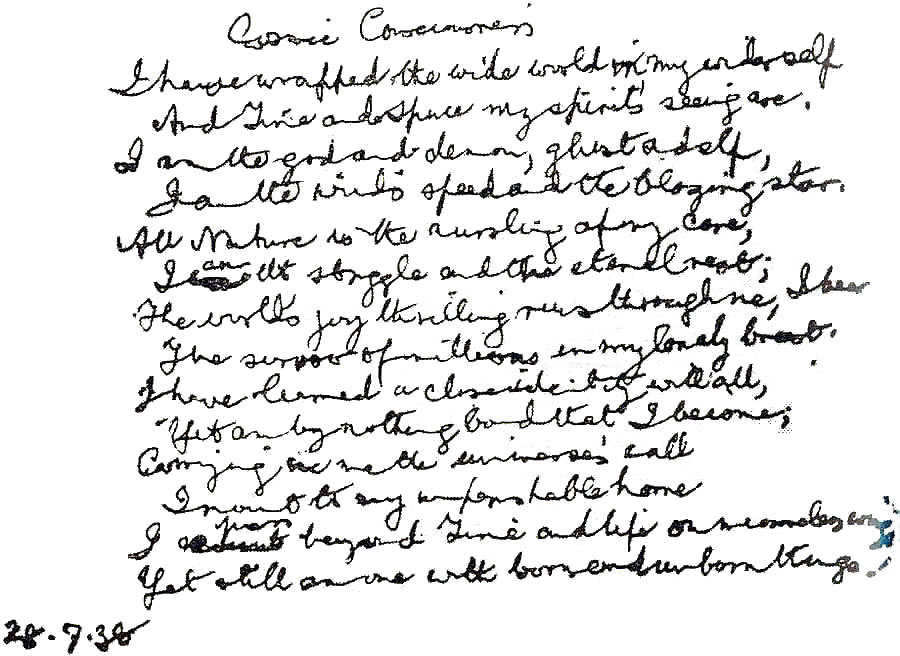 Cosmic Consciousness
I have wrapped the wide world in my wider self
And Time and Space my spirit's seeing are.
I am the god and demon, ghost and elf,
I am the wind's speed and the blazing star.
All Nature is the nursling of my care,
I am its struggle and the eternal rest;
The world's joy thrilling runs through me, I bear
The sorrow of millions in my lonely breast.
I have learned a close identity with all,
Yet am by nothing bound that I become;
Carrying in me the universe's call
I mount to my imperishable home
I pass beyond Time and life on measureless wings
Yet still am one with born and unborn things.
28.7.38